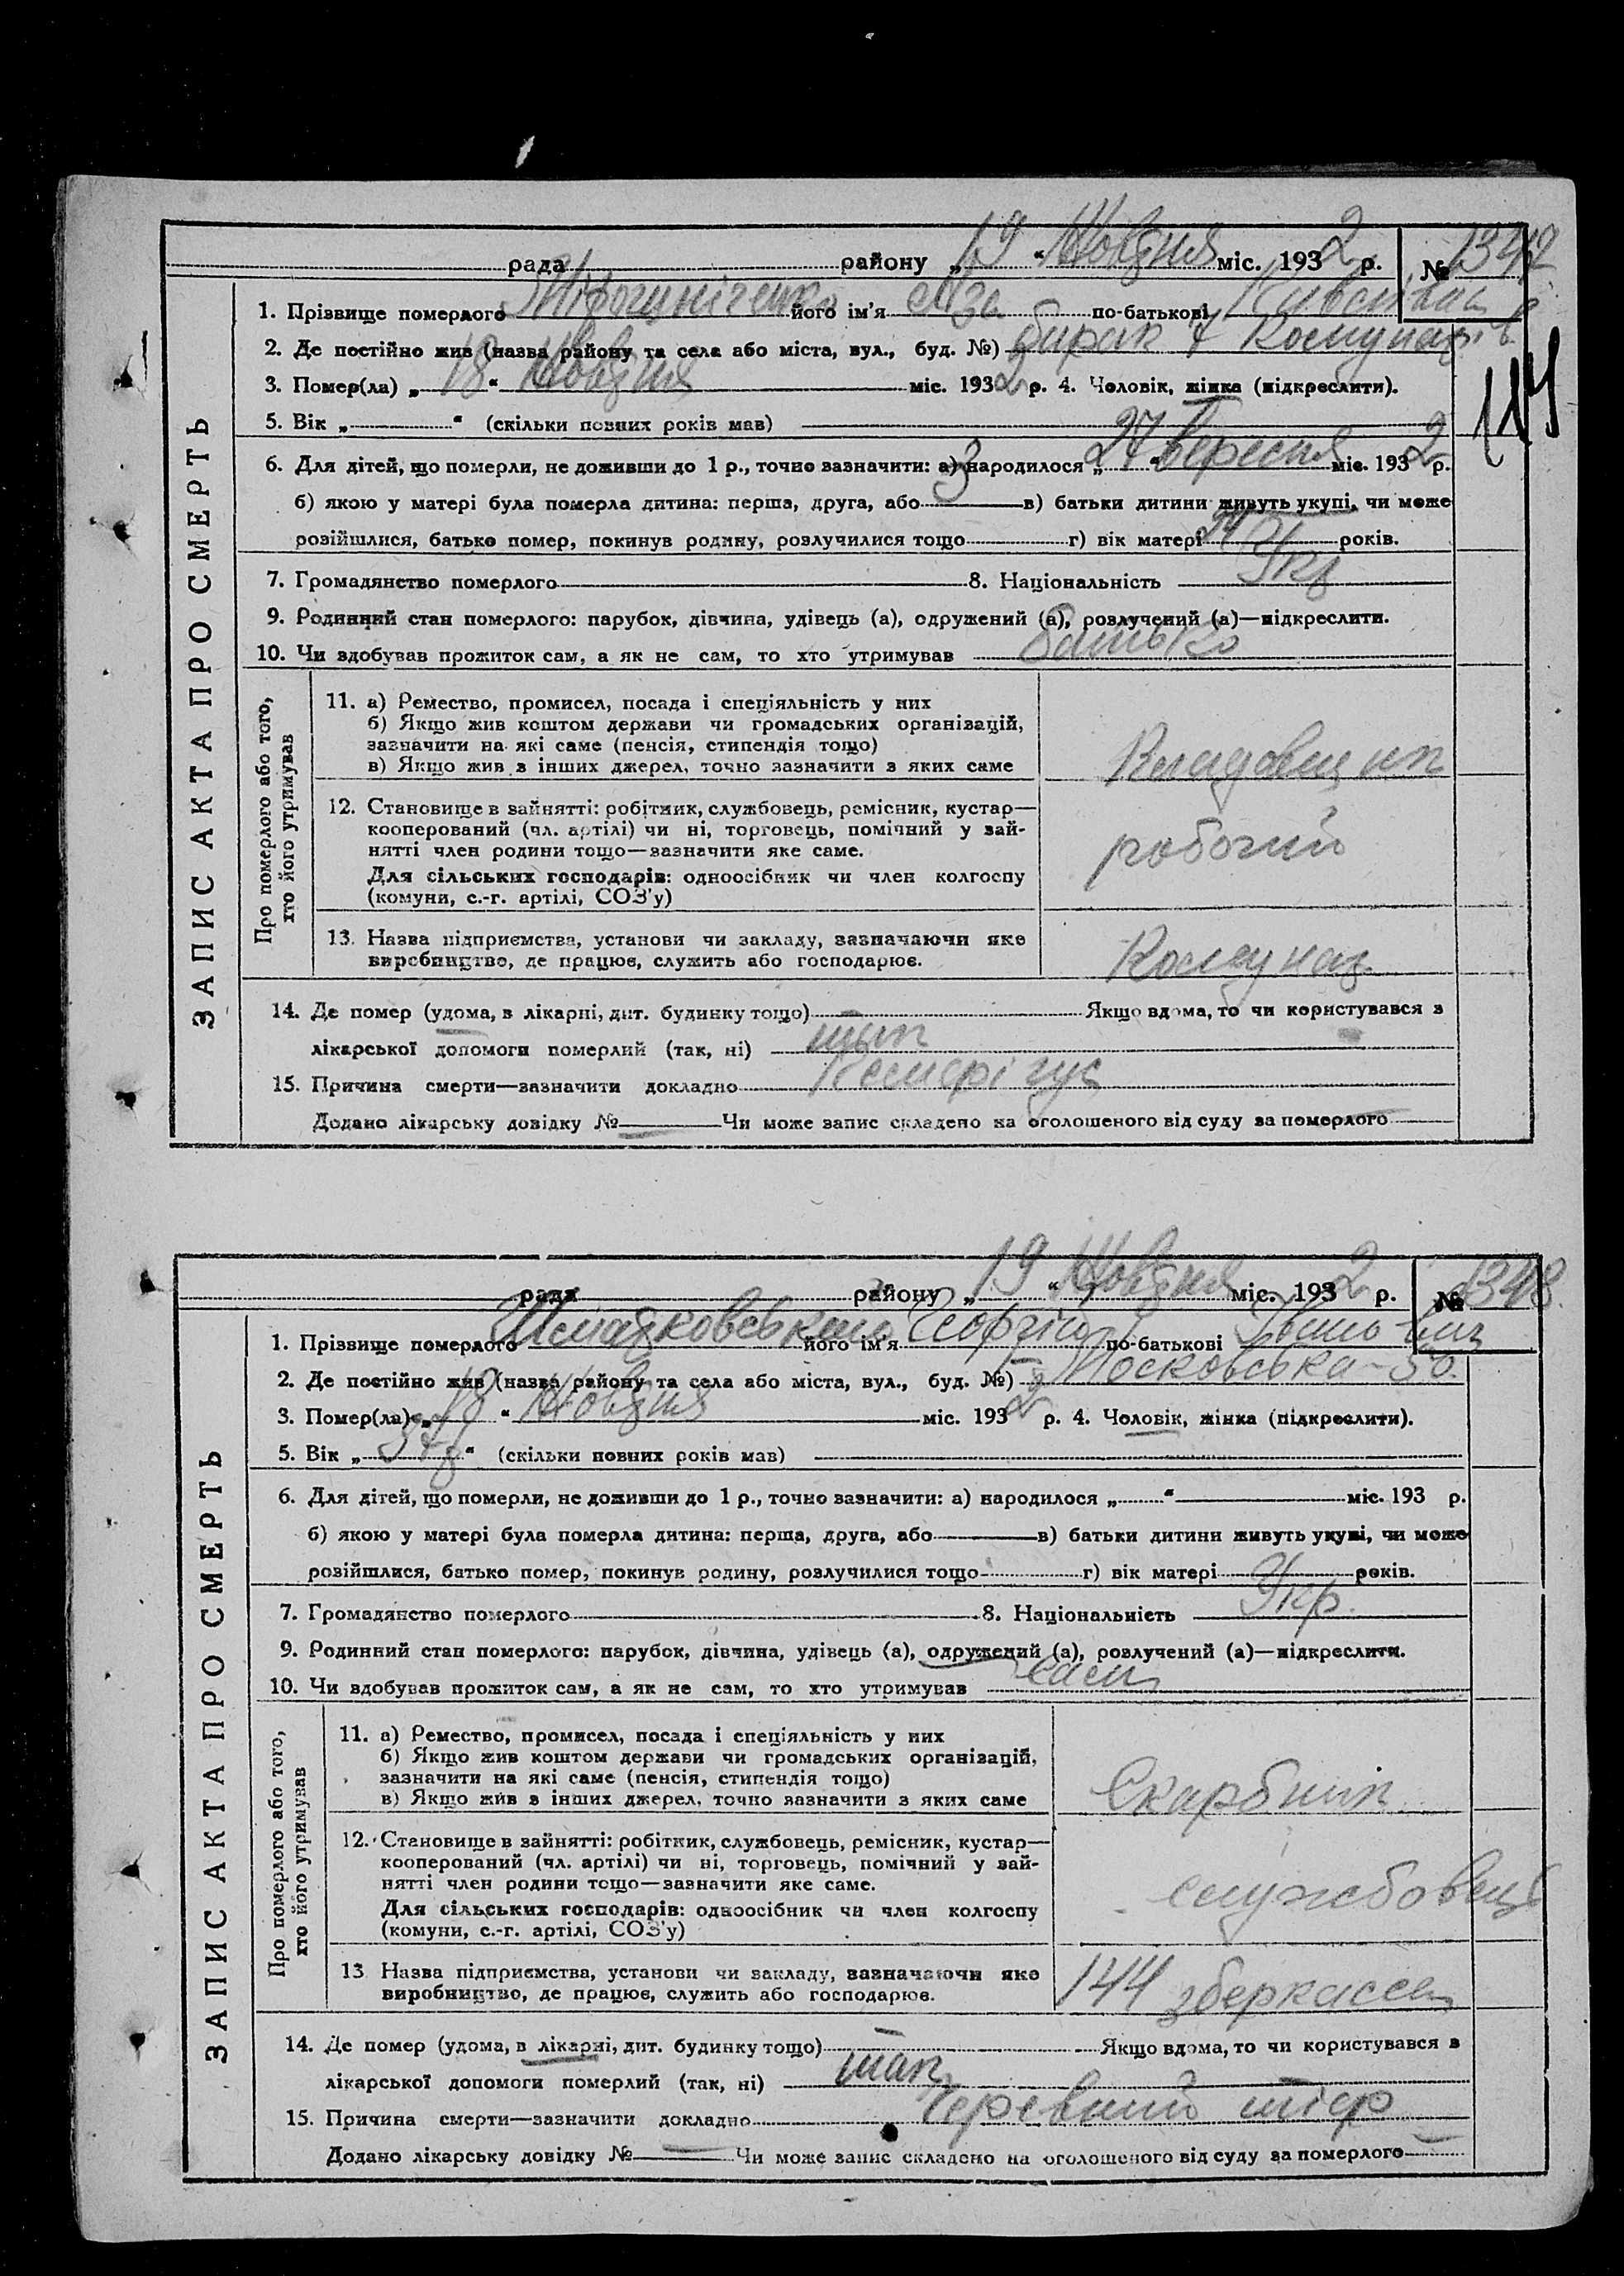 ЗАПИС АКТА ПРО СМЕРТЬ
рада району „19“ Жовтня міс. 1932 р. № 1342
1. Прізвище померлого його ім'я по-батькові
2. Де постійно жив (назва району та села або міста, вул., буд. №) барак 7 Комунарів
3. Помер(ла) „18“ Жовтня міс. 1932 р. 4. Чоловік, жінка (підкреслити).
114
5. Вік „ “ (скільки повних років мав)
6. Для дітей, що померли, не доживши до 1 р., точно зазначити: а) народилося „27“ Вересня міс. 1932 р.
б) якою у матері була померла дитина: перша, друга, або 3 в) батьки дитини живуть укупі, чи може
розійшлися, батько помер, покинув родину, розлучилися тощо г) вік матері років.
7. Громадянство померлого 8. Національність Укр
9. Родинний стан померлого: парубок, дівчина, удівець (а), одружений (а), розлучений (а)—підкреслити.
10. Чи здобував прожиток сам, а як не сам, то хто утримував батько
Про померлого або того, хто його утримував
11. а) Ремество, промисел, посада і спеціяльність у них
б) Якщо жив коштом держави чи громадських організацій,
зазначити на які саме (пенсія, стипендія тощо)
в) Якщо жив з інших джерел, точно зазначити з яких саме
Кладовщик
12. Становище в зайнятті: робітник, службовець, ремісник, кустар—
кооперований (чл. артілі) чи ні, торговець, помічний у зай-
нятті член родини тощо—зазначити яке саме.
Для сільських господарів: одноосібник чи член колгоспу
(комуни, с.-г. артілі, СОЗ'у)
робочий
13. Назва підприємства, установи чи закладу, зазначаючи яке
виробництво, де працює, служить або господарює.
Комунар
14. Де помер (удома, в лікарні, дит. будинку тощо) Якщо вдома, то чи користувався з
лікарської допомоги померлий (так, ні)
15. Причина смерти—зазначити докладно
Додано лікарську довідку № — Чи може запис складено на оголошеного від суду за померлого
ЗАПИС АКТА ПРО СМЕРТЬ
рада району „19“ Жовтня міс. 1932 р. № 1343
1. Прізвище померлого його ім'я Георгій по-батькові
2. Де постійно жив (назва району та села або міста, вул., буд. №) Московська-50.
3. Помер(ла) „18“ Жовтня міс. 1932 р. 4. Чоловік, жінка (підкреслити).
5. Вік „37р“ (скільки повних років мав)
6. Для дітей, що померли, не доживши до 1 р., точно зазначити: а) народилося „ “ міс. 193 р.
б) якою у матері була померла дитина: перша, друга, або в) батьки дитини живуть укупі, чи може
розійшлися, батько помер, покинув родину, розлучилися тощо г) вік матері років.
7. Громадянство померлого 8. Національність Укр.
9. Родинний стан померлого: парубок, дівчина, удівець (а), одружений (а), розлучений (а)—підкреслити.
10. Чи здобував прожиток сам, а як не сам, то хто утримував сам
Про померлого або того, хто його утримував
11. а) Ремество, промисел, посада і спеціяльність у них
б) Якщо жив коштом держави чи громадських організацій,
зазначити на які саме (пенсія, стипендія тощо)
в) Якщо жив з інших джерел, точно зазначити з яких саме
Скарбник
12. Становище в зайнятті: робітник, службовець, ремісник, кустар—
кооперований (чл. артілі) чи ні, торговець, помічний у зай-
нятті член родини тощо—зазначити яке саме.
Для сільських господарів: одноосібник чи член колгоспу
(комуни, с.-г. артілі, СОЗ'у)
службовець
13 Назва підприємства, установи чи закладу, зазначаючи яке
виробництво, де працює, служить або господарює.
144 зберкасса
14. Де помер (удома, в лікарні, дит. будинку тощо) Якщо вдома, то чи користувався з
лікарської допомоги померлий (так, ні) так
15. Причина смерти—зазначити докладно Черевний тиф
Додано лікарську довідку № — Чи може запис складено на оголошеного від суду за померлого —